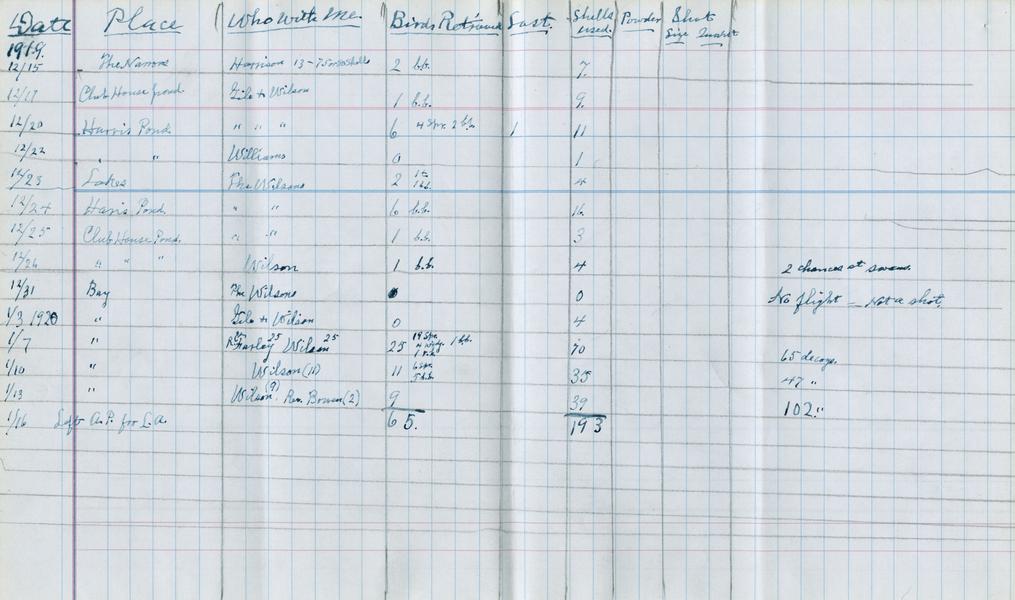 Date Place Who With Me. Birds Retrieved Lost Shells used. Powder Shot Size
1919.
12/15 The Narrows Harrison 2 b.b. 7.
12/17 Club House pond Gile & Wilson 1 b.b. 9.
12/20 Harris Pond " " " 6 4 Spr. 2 b.b. 1 11
12/22 " " Williams 0 1
12/23 Lakes The Wilsons 2 4
12/24 Haris Pond. " " 6 b.b. 16.
12/25 Club House Pond. " " 1 b.b. 3
12/26 " " " Wilson 1 b.b. 4 2 chances at swans.
12/31 Bay The Wilsons 0 No flight — Not a shot.
1/3 1920 " Gile & Wilson 0 4
1/7 " Farley 25 Wilson 25 25 19 Spr. 1 b.b. 70 65 decoys.
1/10 " Wilson (11) 11 6 Spr. 5 b.b. 35 47 "
1/13 " Wilson (9) Rev. Bowen (2) 9 39 102 "
1/16 Left A.P. for L.A. 65. 193